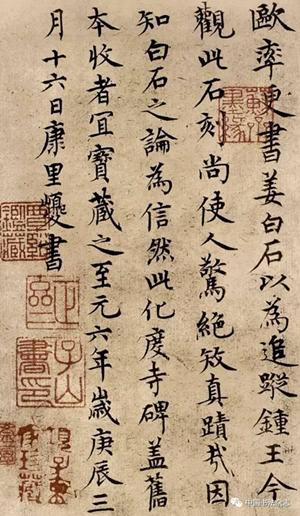 歐率更書姜白石以為追蹤鍾王今
觀此石刻尚使人驚絕况真蹟哉因
知白石之論為信然此化度寺碑蓋舊
本收者宜寶藏之至元六年歲庚辰三
月十六日康里巙書
正齋
子山書印
中国书法杂志